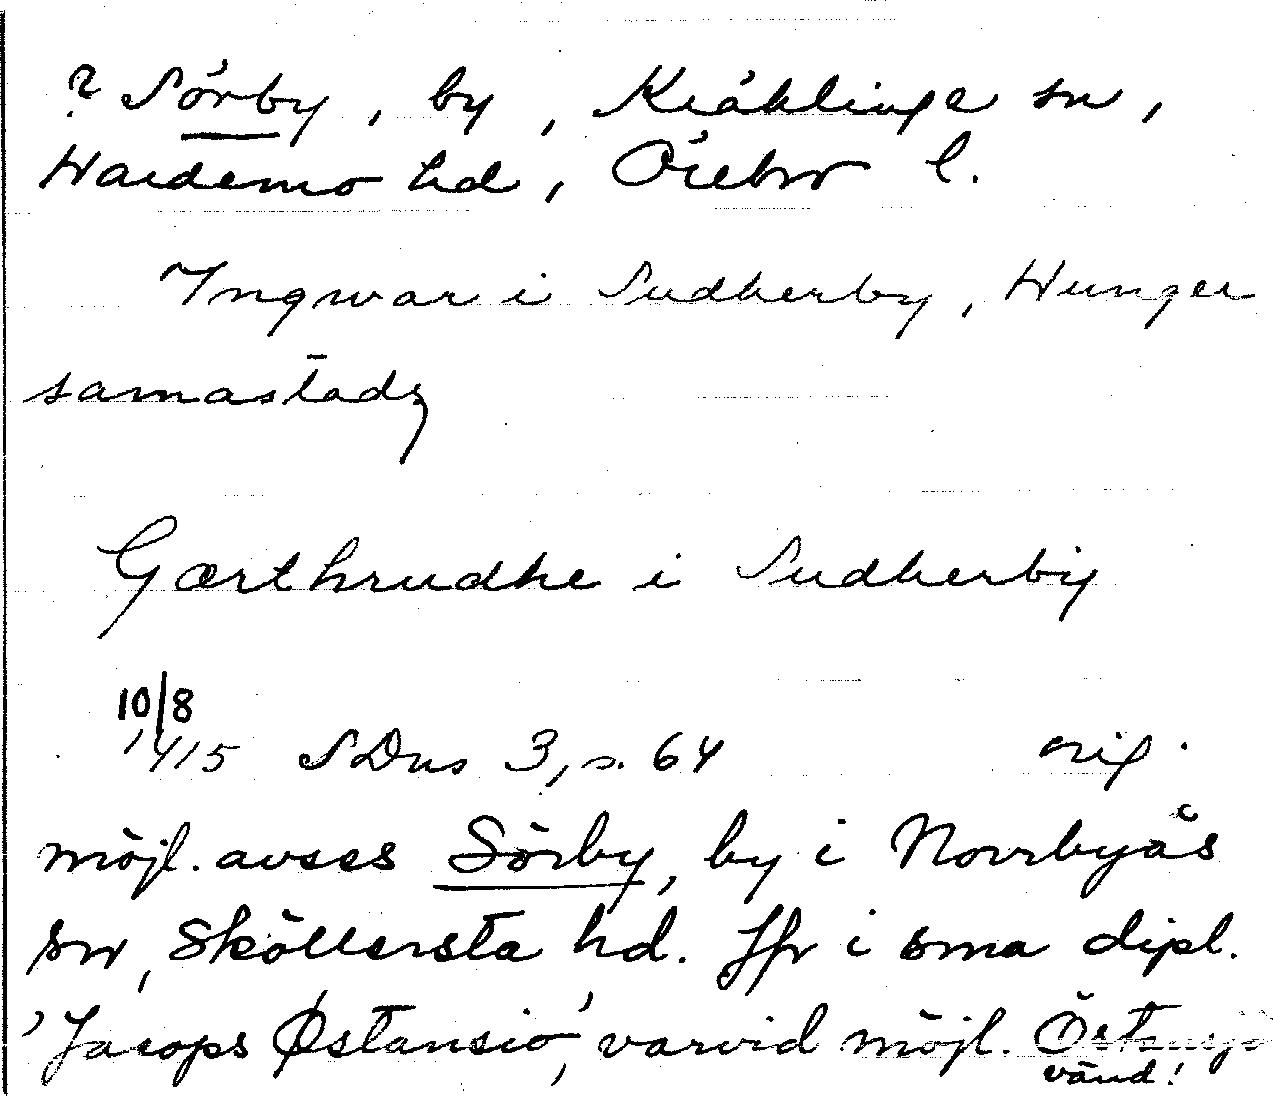 ? Sörby, by, Kräklinge sn,
Hardemo hd, Örebro l.
Ingwar i Sudherby, Hunger
samastadz
Gærthrudhe i Sudherby
10/8
1415 SDns 3, s. 64 orig.
möjl. avses Sörby, by i Norrbyås
sn, Sköllersta hd. Jfr i sma dipl.
'Jacops Østansio', varvid möjl. Östansjö
vänd!